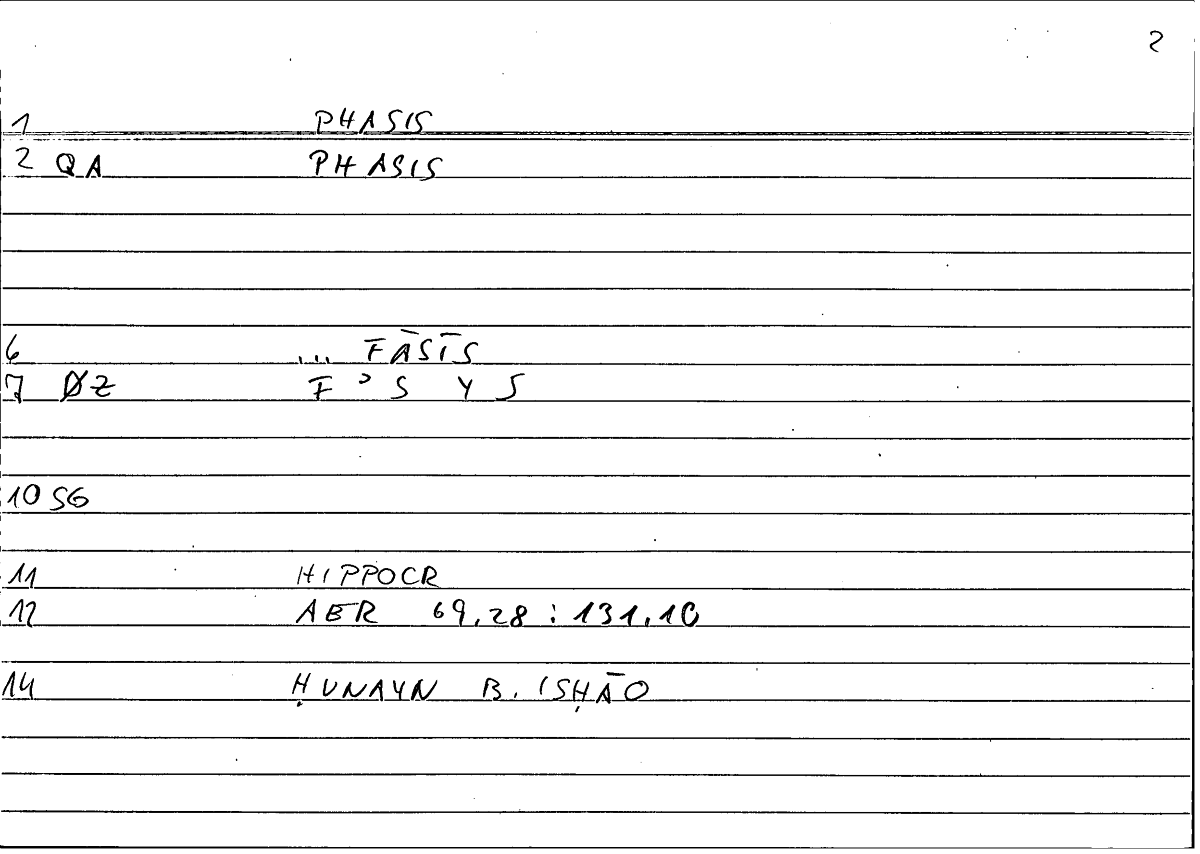 2
1 PHASIS
2 QA PHASIS
6 ... FĀSĪS
7 ØZ F ʾ S Y S
10 SG
11 HIPPOCR
12 AER 69,28 : 131,10
14 ḤUNAYN B. ISḤĀQ